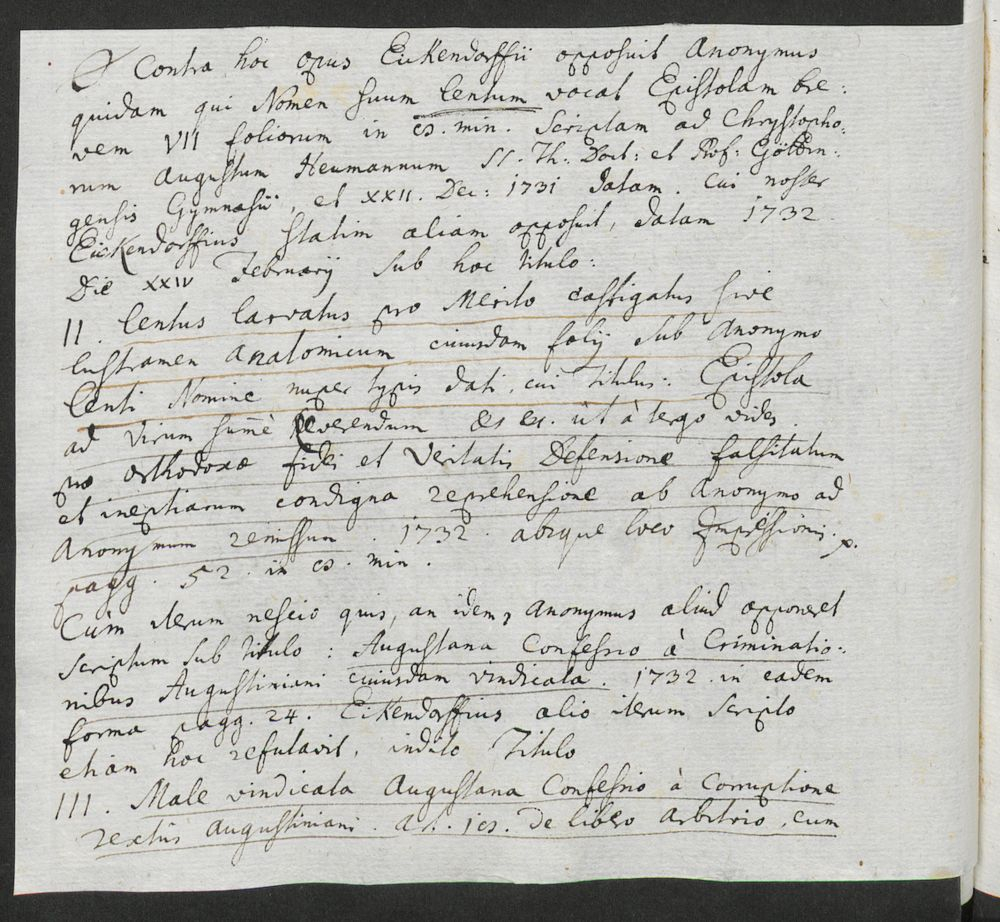 Contra hoc opus Eickendorffii opposuit Anonymus
quidam qui Nomen suum Centum vocat Epistolam bre:
vem VII foliorum in 8. min. Scriptam ad Chrystopho:
rum Augustum Heumannum SS. Th: Doct: et Prof: Göttin:
gensis Gymnasii, et XXII. Dec: 1731 datam. Cui noster
Eickendorffius statim aliam opposuit, datam 1732
Die XXIV Februarij sub hoc titulo:
II. Centus larvatus pro Merito castigatus sive
lustramen Anatomicum cuiusdam folij sub Anonymo
Centi Nomine nuper typis dati, cui titulus: Epistola
ad Virum summè Reverendum &c &c. ut à tergo vides
pro orthodoxæ fidei et Veritatis Defensione falsitatum
et ineptiarum condigna reprehensione ab Anonymo ad
Anonymum remissum. 1732. absque loco Impressionis.
pagg. 52. in 8. min.
Cùm iterum nescio quis, an idem, Anonymus aliud opponeret
scriptum sub titulo: Augustana Confessio à Criminatio:
nibus Augustiniani cuiusdam vindicata. 1732. in eadem
forma pagg. 24. Eikendorffius alio iterum scripto
etiam hoc refutavit, indito Titulo
III. Male vindicata Augustana Confessio à Corruptione
textûs Augustiniani. Art. 18. De libero Arbitrio, cum